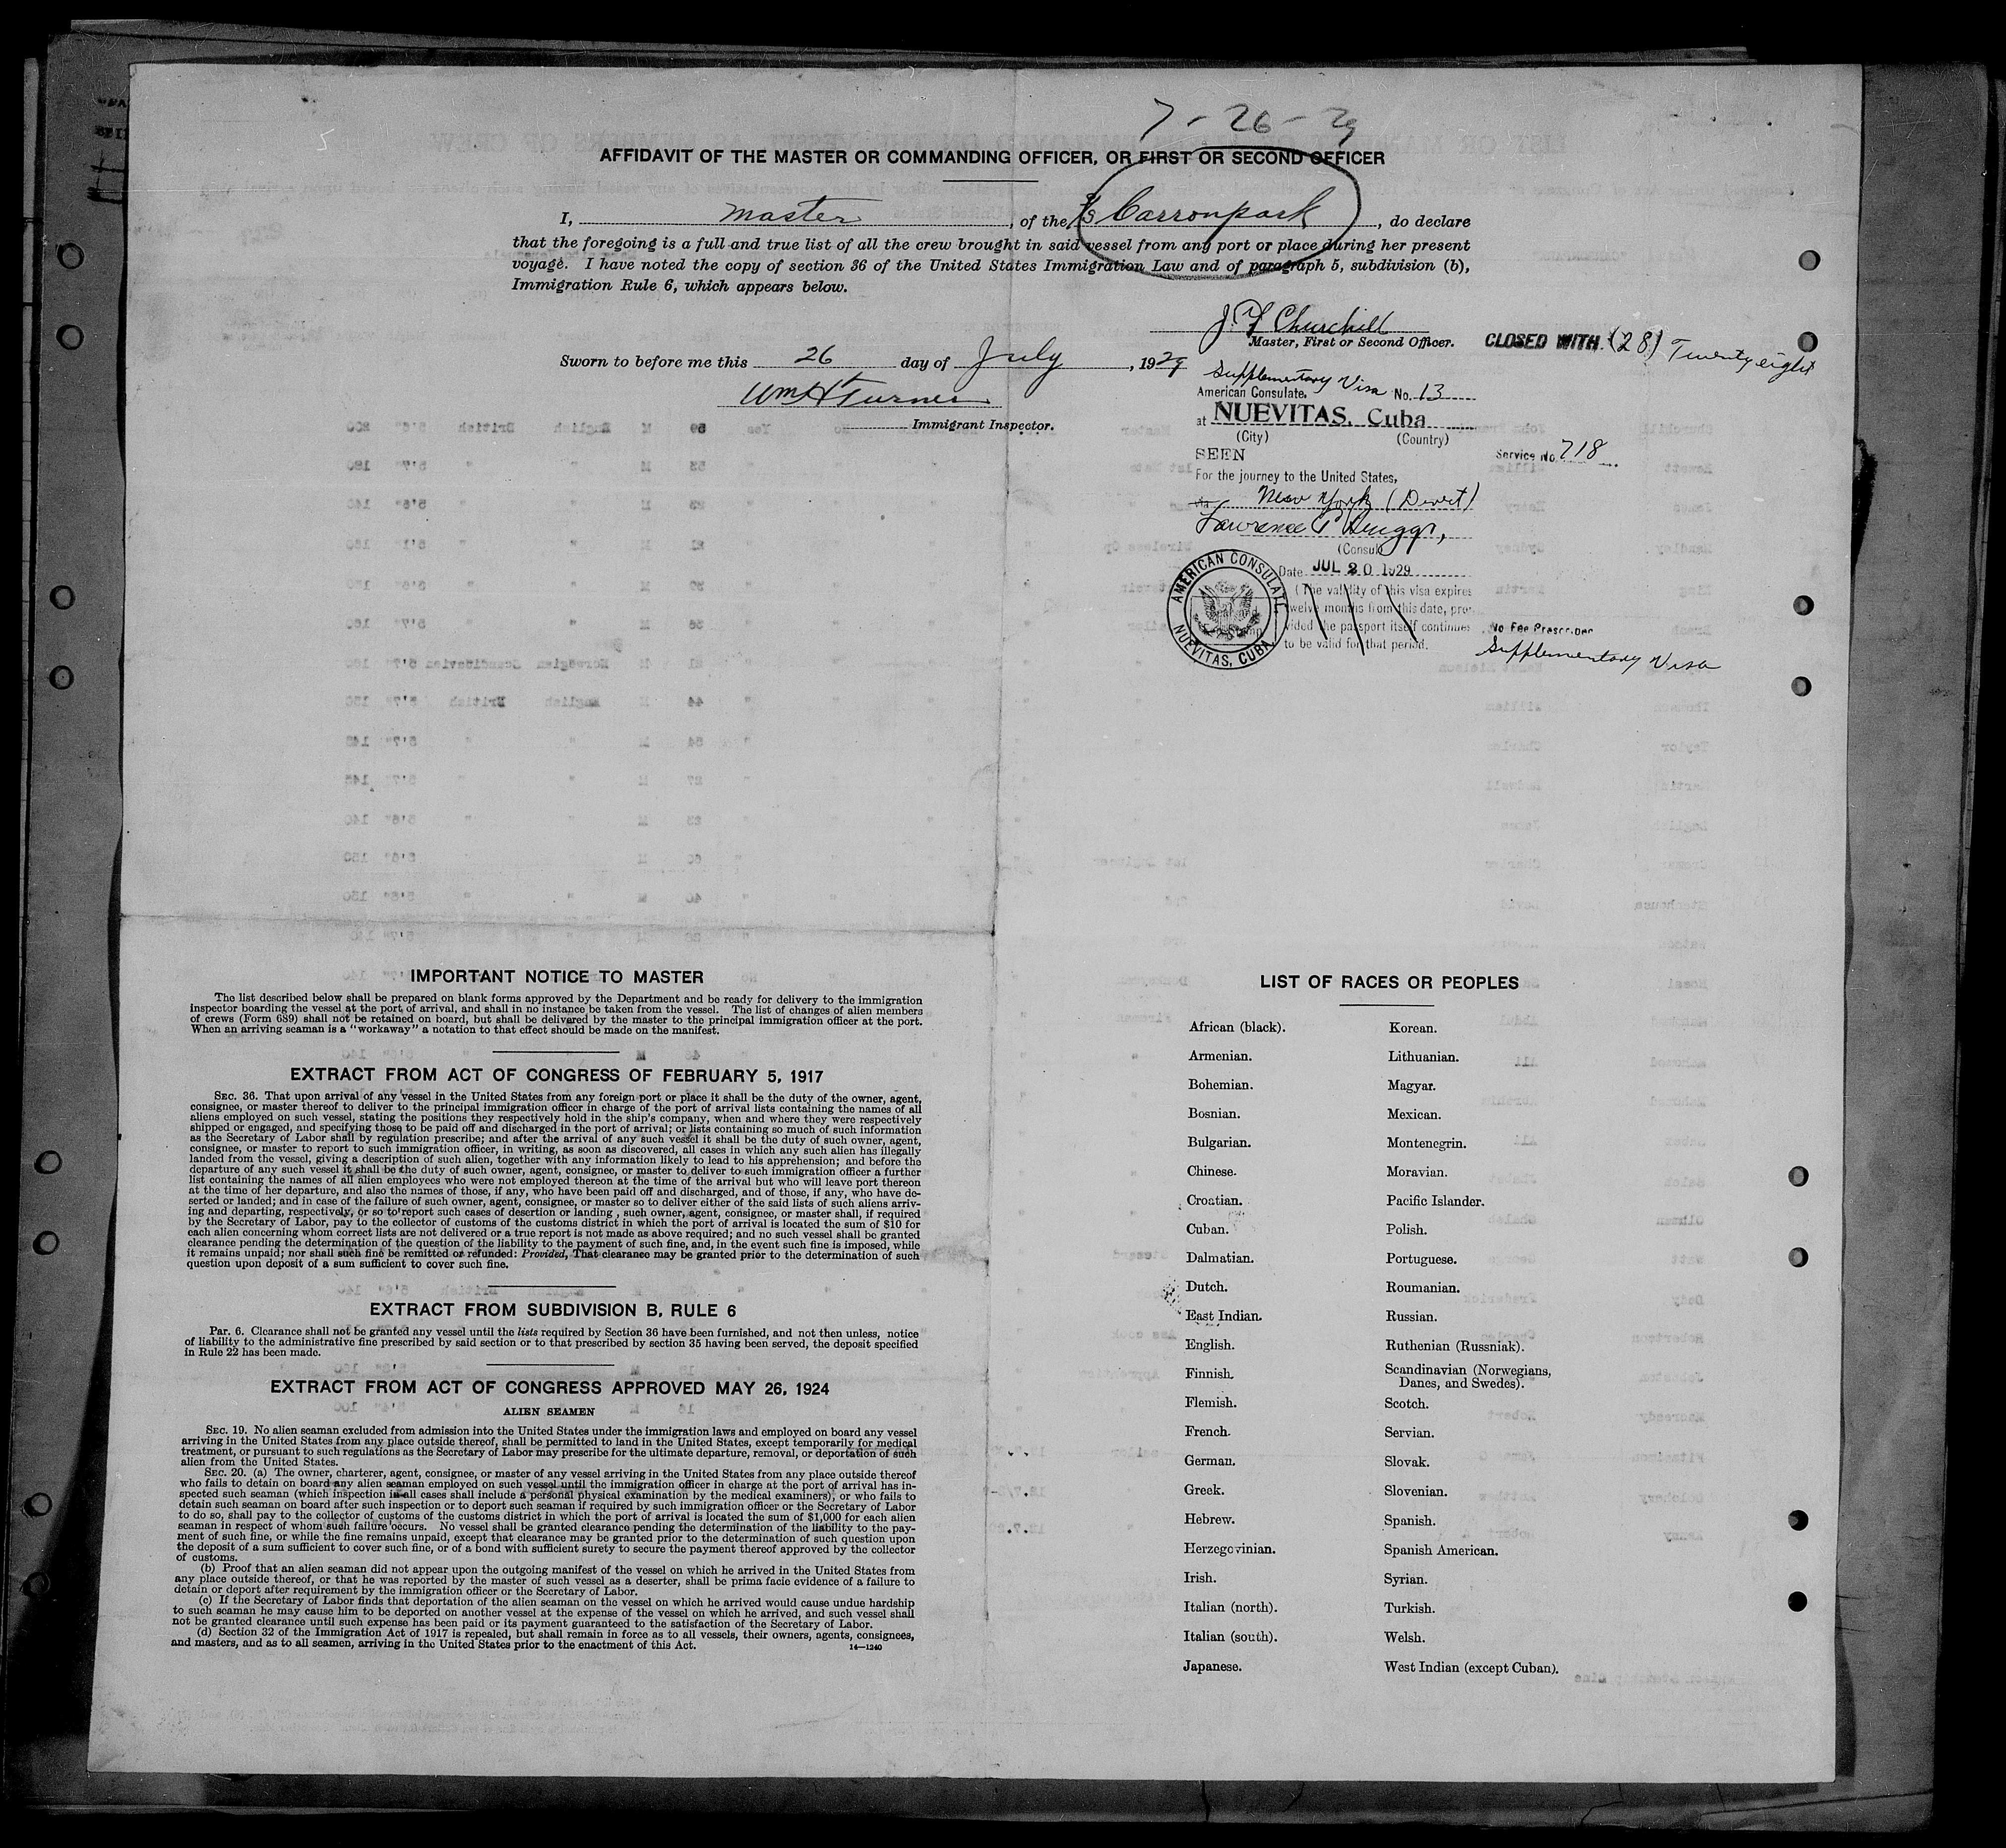 7-26-29
AFFIDAVIT OF THE MASTER OR COMMANDING OFFICER, OR FIRST OR SECOND OFFICER
I, master, of the S/S Carronpark, do declare
that the foregoing is a full and true list of all the crew brought in said vessel from any port or place during her present
voyage. I have noted the copy of section 36 of the United States Immigration Law and of paragraph 5, subdivision (b),
Immigration Rule 6, which appears below.
J. F. Churchill
Master, First or Second Officer.
CLOSED WITH (28) Twenty eight
Sworn to before me this 26 day of July, 1929
Wm H Turner
Immigrant Inspector.
Supplementary Visa
American Consulate. No. 13
at NUEVITAS, Cuba
(City) (Country)
SEEN
Service No. 718
For the journey to the United States,
via New York (Direct)
Lawrence P Briggs,
(Consul)
Date JUL 20 1929
(The validity of this visa expires
twelve months from this date, pro-
vided the passport itself continues
to be valid for that period.
AMERICAN CONSULATE
NUEVITAS, CUBA
No Fee Prescribed
Supplementary Visa
IMPORTANT NOTICE TO MASTER
The list described below shall be prepared on blank forms approved by the Department and be ready for delivery to the immigration
inspector boarding the vessel at the port of arrival, and shall in no instance be taken from the vessel. The list of changes of alien members
of crews (Form 689) shall not be retained on board, but shall be delivered by the master to the principal immigration officer at the port.
When an arriving seaman is a "workaway" a notation to that effect should be made on the manifest.
EXTRACT FROM ACT OF CONGRESS OF FEBRUARY 5, 1917
SEC. 36. That upon arrival of any vessel in the United States from any foreign port or place it shall be the duty of the owner, agent,
consignee, or master thereof to deliver to the principal immigration officer in charge of the port of arrival lists containing the names of all
aliens employed on such vessel, stating the positions they respectively hold in the ship's company, when and where they were respectively
shipped or engaged, and specifying those to be paid off and discharged in the port of arrival; or lists containing so much of such information
as the Secretary of Labor shall by regulation prescribe; and after the arrival of any such vessel it shall be the duty of such owner, agent,
consignee, or master to report to such immigration officer, in writing, as soon as discovered, all cases in which any such alien has illegally
landed from the vessel, giving a description of such alien, together with any information likely to lead to his apprehension; and before the
departure of any such vessel it shall be the duty of such owner, agent, consignee, or master to deliver to such immigration officer a further
list containing the names of all alien employees who were not employed thereon at the time of the arrival but who will leave port thereon
at the time of her departure, and also the names of those, if any, who have been paid off and discharged, and of those, if any, who have de-
serted or landed; and in case of the failure of such owner, agent, consignee, or master so to deliver either of the said lists of such aliens arriv-
ing and departing, respectively, or so to report such cases of desertion or landing, such owner, agent, consignee, or master shall, if required
by the Secretary of Labor, pay to the collector of customs of the customs district in which the port of arrival is located the sum of $10 for
each alien concerning whom correct lists are not delivered or a true report is not made as above required; and no such vessel shall be granted
clearance pending the determination of the question of the liability to the payment of such fine, and, in the event such fine is imposed, while
it remains unpaid; nor shall such fine be remitted or refunded: Provided, That clearance may be granted prior to the determination of such
question upon deposit of a sum sufficient to cover such fine.
EXTRACT FROM SUBDIVISION B, RULE 6
Par. 6. Clearance shall not be granted any vessel until the lists required by Section 36 have been furnished, and not then unless, notice
of liability to the administrative fine prescribed by said section or to that prescribed by section 35 having been served, the deposit specified
in Rule 22 has been made.
EXTRACT FROM ACT OF CONGRESS APPROVED MAY 26, 1924
ALIEN SEAMEN
SEC. 19. No alien seaman excluded from admission into the United States under the immigration laws and employed on board any vessel
arriving in the United States from any place outside thereof, shall be permitted to land in the United States, except temporarily for medical
treatment, or pursuant to such regulations as the Secretary of Labor may prescribe for the ultimate departure, removal, or deportation of such
alien from the United States.
SEC. 20. (a) The owner, charterer, agent, consignee, or master of any vessel arriving in the United States from any place outside thereof
who fails to detain on board any alien seaman employed on such vessel until the immigration officer in charge at the port of arrival has in-
spected such seaman (which inspection in all cases shall include a personal physical examination by the medical examiners), or who fails to
detain such seaman on board after such inspection or to deport such seaman if required by such immigration officer or the Secretary of Labor
to do so, shall pay to the collector of customs of the customs district in which the port of arrival is located the sum of $1,000 for each alien
seaman in respect of whom such failure occurs. No vessel shall be granted clearance pending the determination of the liability to the pay-
ment of such fine, or while the fine remains unpaid, except that clearance may be granted prior to the determination of such question upon
the deposit of a sum sufficient to cover such fine, or of a bond with sufficient surety to secure the payment thereof approved by the collector
of customs.
(b) Proof that an alien seaman did not appear upon the outgoing manifest of the vessel on which he arrived in the United States from
any place outside thereof, or that he was reported by the master of such vessel as a deserter, shall be prima facie evidence of a failure to
detain or deport after requirement by the immigration officer or the Secretary of Labor.
(c) If the Secretary of Labor finds that deportation of the alien seaman on the vessel on which he arrived would cause undue hardship
to such seaman he may cause him to be deported on another vessel at the expense of the vessel on which he arrived, and such vessel shall
not be granted clearance until such expense has been paid or its payment guaranteed to the satisfaction of the Secretary of Labor.
(d) Section 32 of the Immigration Act of 1917 is repealed, but shall remain in force as to all vessels, their owners, agents, consignees,
and masters, and as to all seamen, arriving in the United States prior to the enactment of this Act.
14—1240
LIST OF RACES OR PEOPLES
African (black). Korean.
Armenian. Lithuanian.
Bohemian. Magyar.
Bosnian. Mexican.
Bulgarian. Montenegrin.
Chinese. Moravian.
Croatian. Pacific Islander.
Cuban. Polish.
Dalmatian. Portuguese.
Dutch. Roumanian.
East Indian. Russian.
English. Ruthenian (Russniak).
Finnish. Scandinavian (Norwegians,
Danes, and Swedes).
Flemish. Scotch.
French. Servian.
German. Slovak.
Greek. Slovenian.
Hebrew. Spanish.
Herzegovinian. Spanish American.
Irish. Syrian.
Italian (north). Turkish.
Italian (south). Welsh.
Japanese. West Indian (except Cuban).